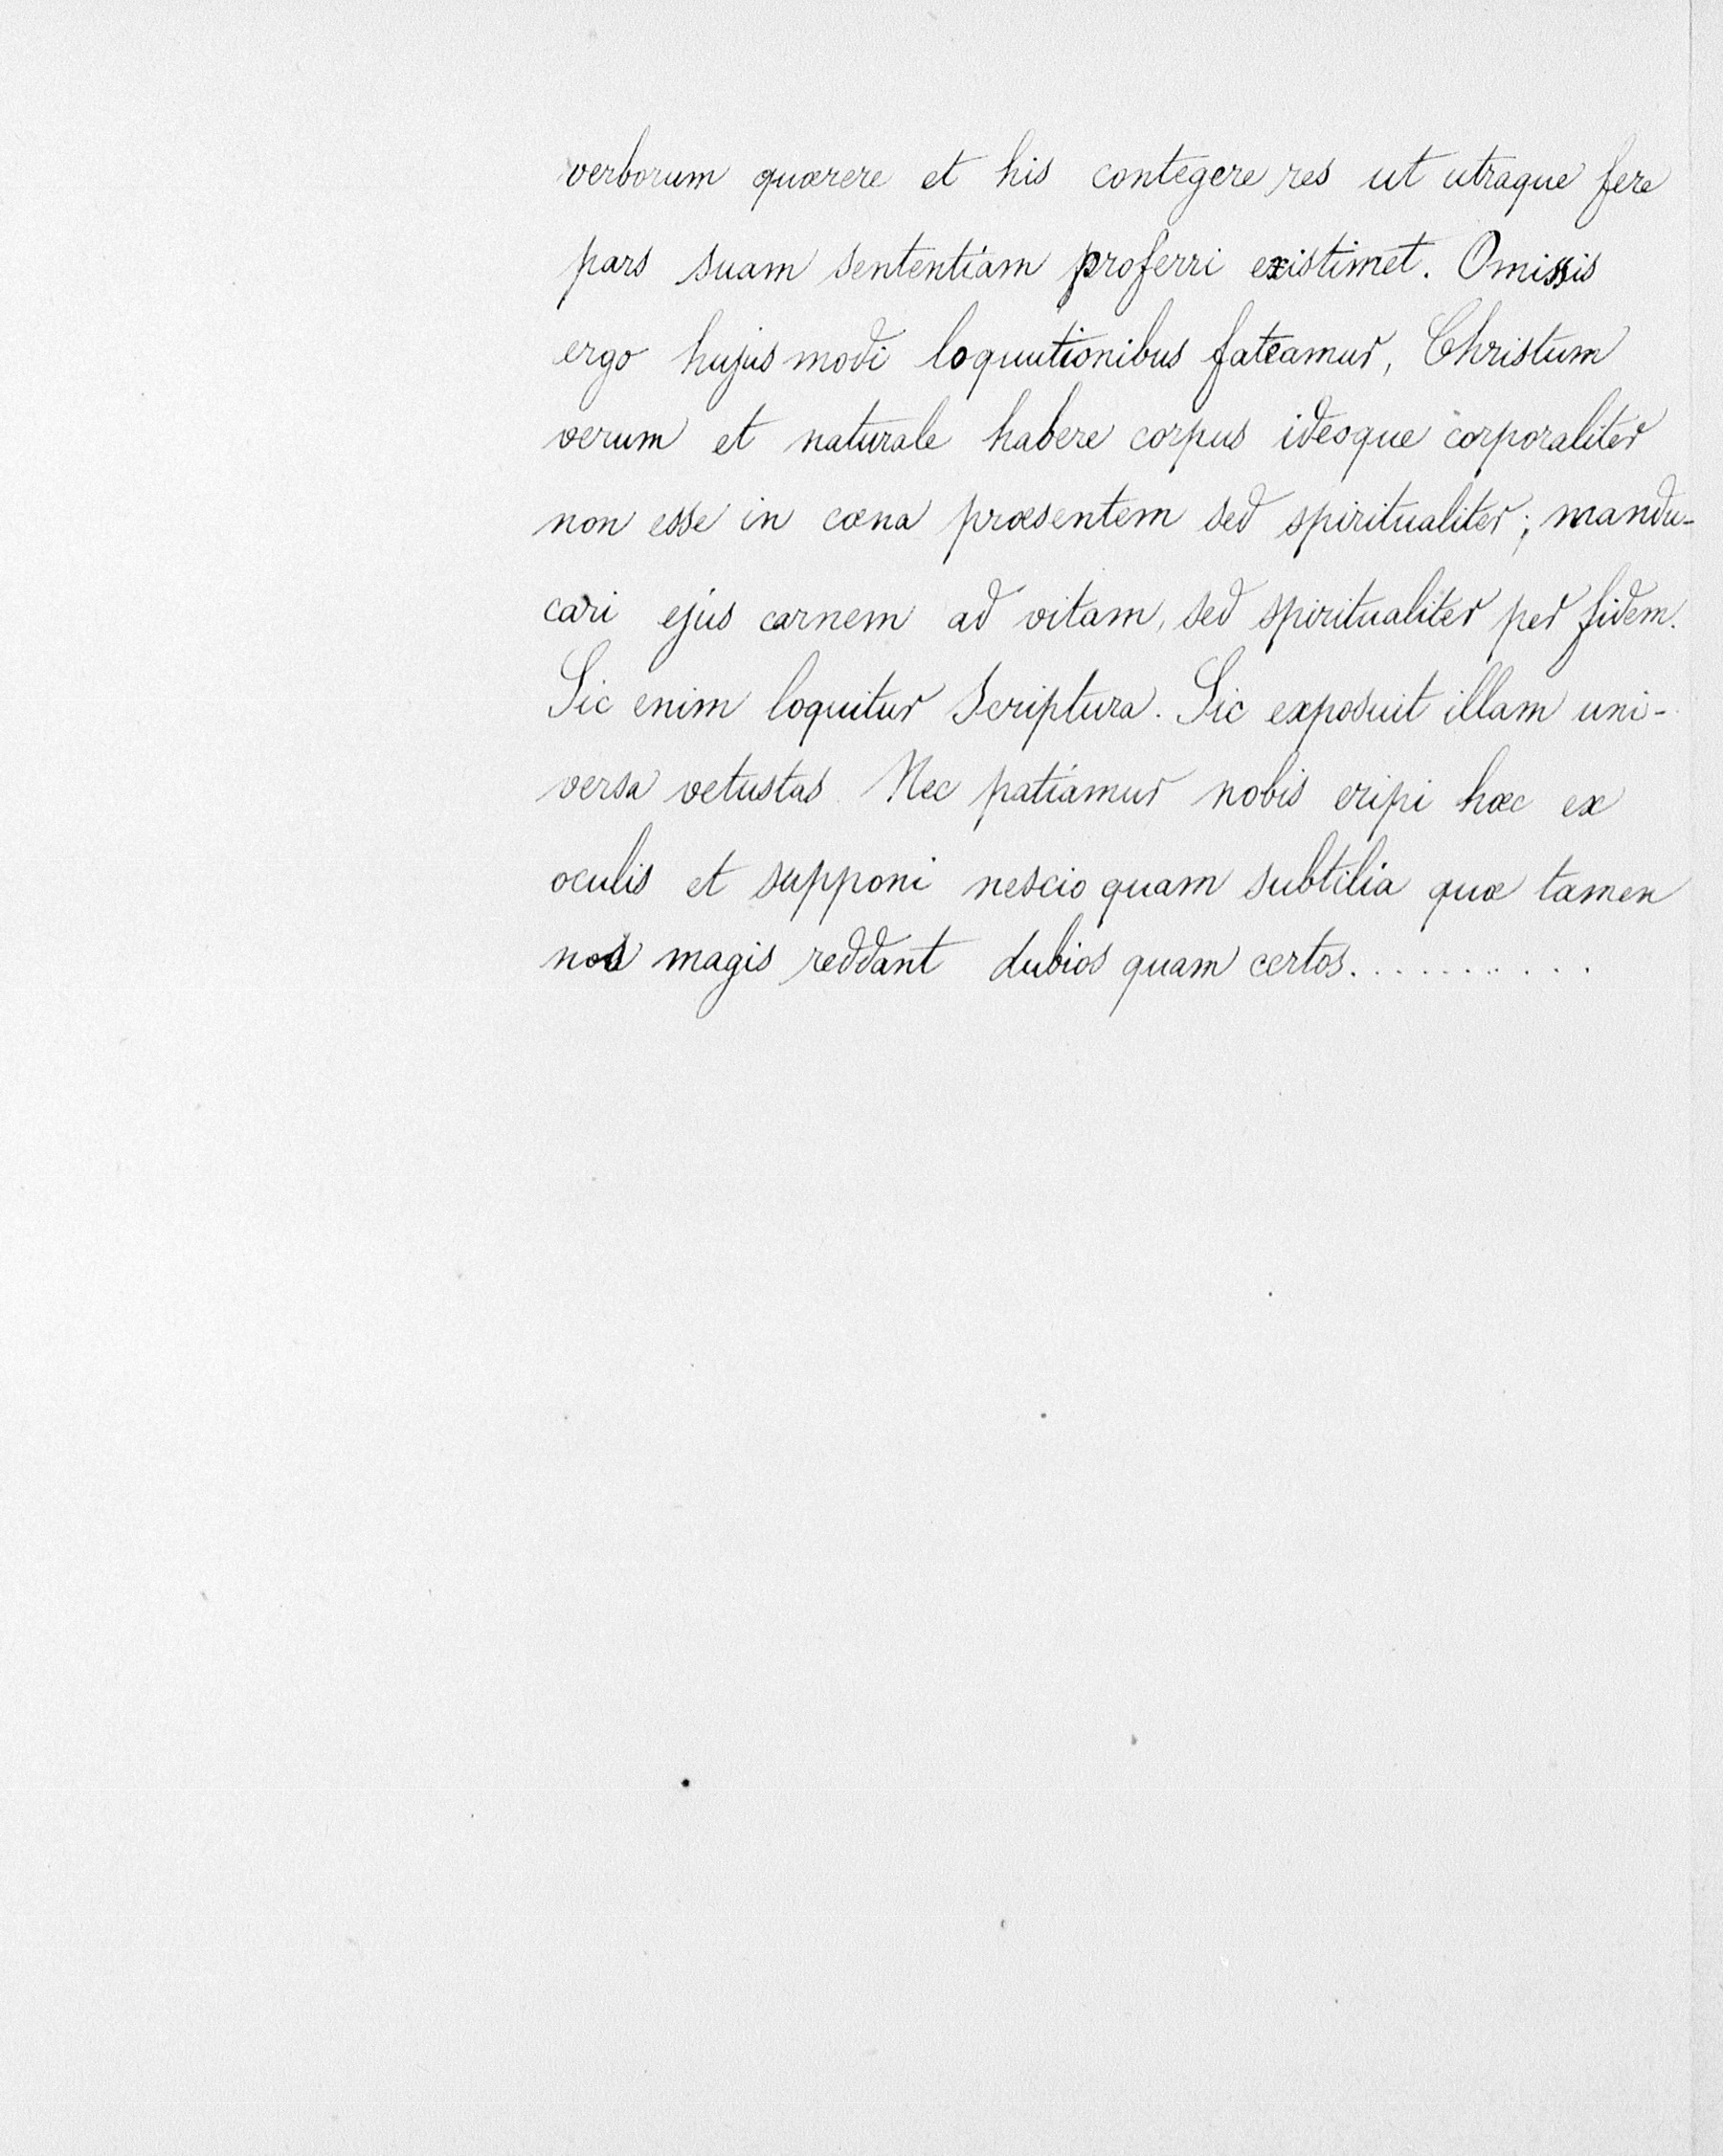 verborum quærere et his contegere res ut utraque fere
pars suam sententiam proferri existimet. Omissis
ergo hujus modi loquutionibus fateamur, Christum
verum et naturale habere corpus ideoque corporaliter
non esse in cœna præsentem sed spiritualiter; mandu-
cari ejus carnem ad vitam, sed spiritualiter per fidem.
Sic enim loquitur Scriptura. Sic exposuit illam uni-
versa vetustas. Nec patiamur nobis eripi hæc ex
oculis et supponi nescio quam subtilia quæ tamen
nos magis reddant dubios quam certos...........